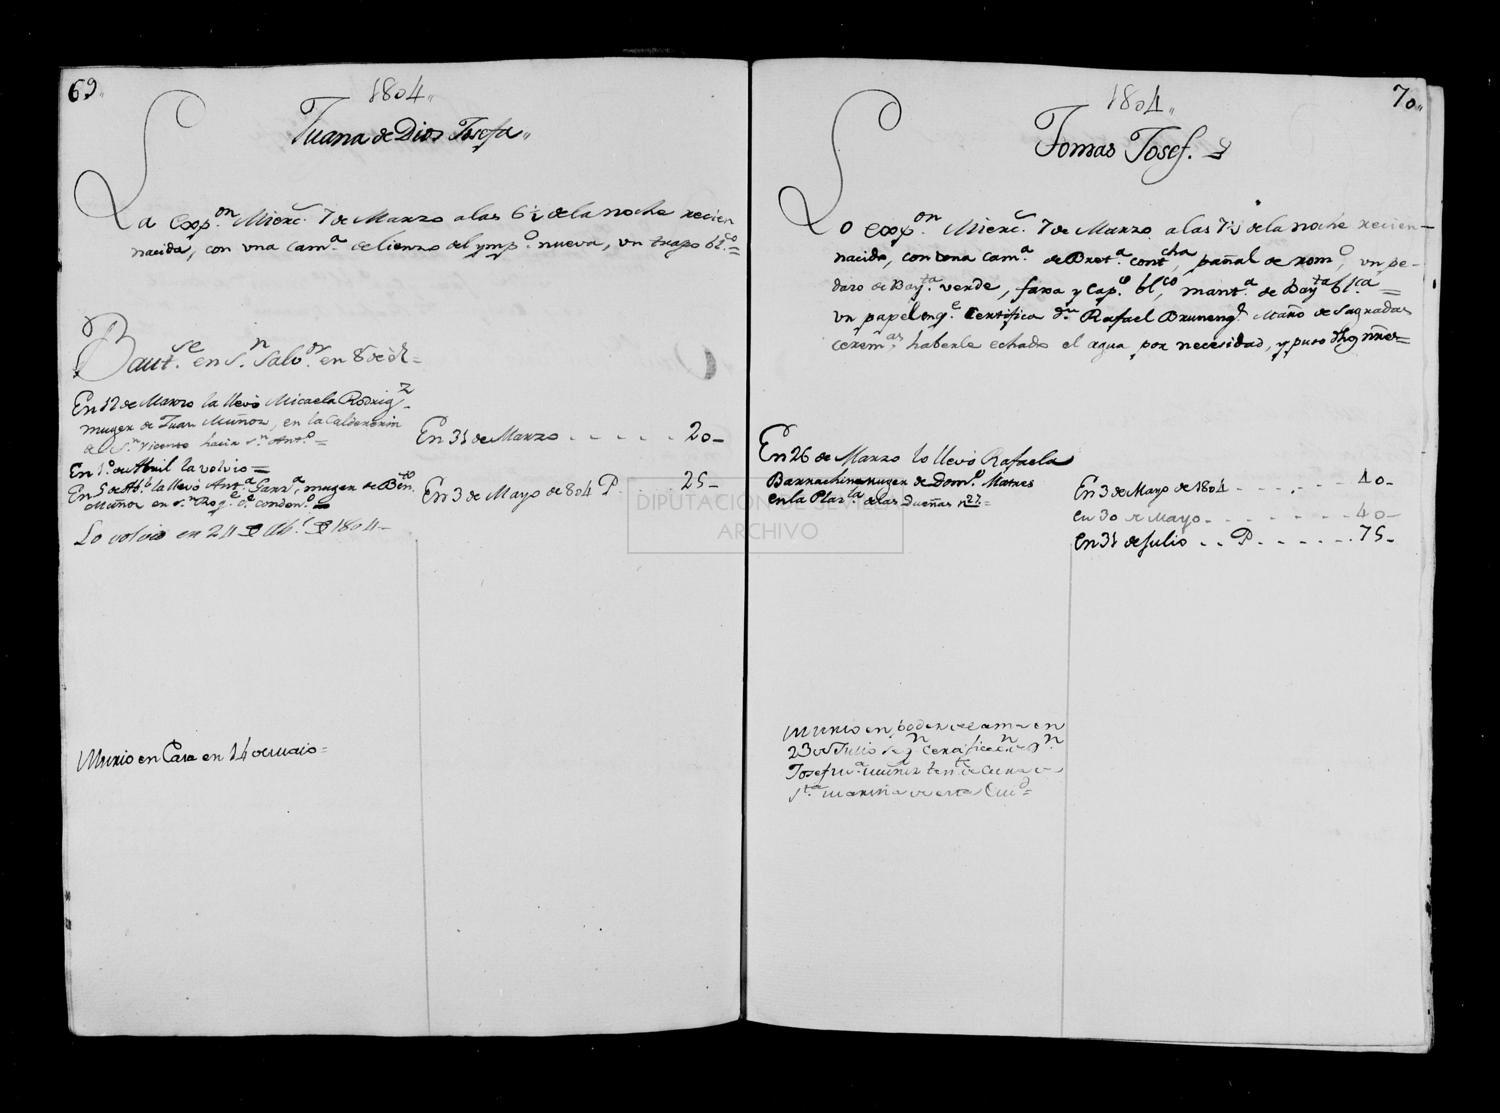 69,,
1804,,
Juana de Dios Josefa,,
La exp.on Mierc.s 7 de Marzo a las 6½ de la noche recien
nacida, con una cam.a de lienzo del ymp.o nueva, un trapo bl.co =
Baut.se en S.n Salv.or en 8 de
En 12 de Marzo la llevó Micaela Rodrig.z
muger de Juan Muñoz, en la Caldereria
S.n Vicente hacia S.n Ant.o =
En 1.o de Abril la volvio =
En 5 de Ab.l la llevó Ant.a Garr.a muger de Ben.to
Muñoz en S.n Roq.e
Lo volvio en 24 de Ab.l de 1804 –
En 31 de Marzo . . . . . . 20 –
En 3 de Mayo de 804 P. . . . 25 –
Murio en Casa en 14 de Maio =
70,,
1804,,
Tomas Josef.
Lo exp.on Mierc.s 7 de Marzo a las 7½ de la noche recien –
nacido, con una cam.a de Bret.a con ch.a, pañal de rom.o, un pe –
dazo de Bay.ta verde, faxa y cap.o bl.co, mant.a de Bay.ta bl.ca =
un papel en q.e Certifica d.n Rafael Bruneng.l Mãro de Sagradas
cerem.as haberle echado el agua por necesidad, y puso dhos nr̃es =
En 26 de Marzo lo llevó Rafaela
Barrachina muger de Dom.o Matres
en la Plaz.la de las Dueñas n 27 =
En 3 de Mayo de 1804 . . . . . . 40 –
en 30 de Mayo . . . . . . 40 –
En 31 de Julio . . P. . . . . . 75 –
Murio en poder del ama en
23 de Julio seg.n certificac.n de D.n
Josef M.a Muñiz ten.te de Cura de
S.ta Marina de esta Ciu.d =
DIPUTACION DE SEVILLA
ARCHIVO